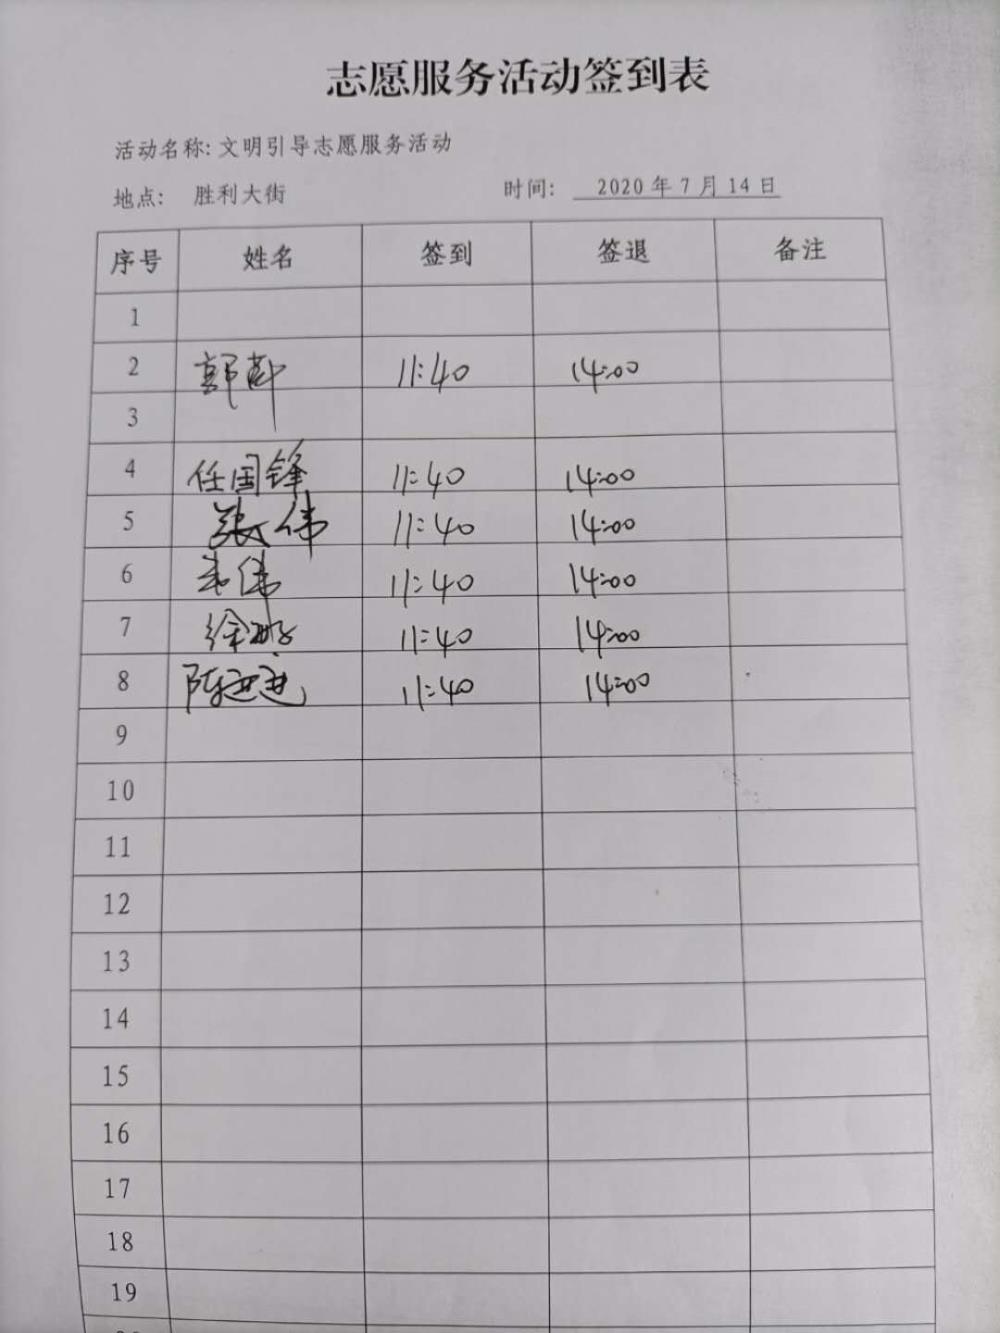 志愿服务活动签到表
活动名称: 文明引导志愿服务活动
地点: 胜利大街 时间: 2020 年 7 月 14 日
序号 姓名 签到 签退 备注
1
2 11:40 14:00
3
4 任国锋 11:40 14:00
5 张伟 11:40 14:00
6 11:40 14:00
7 11:40 14:00
8 陈进进 11:40 14:00
9
10
11
12
13
14
15
16
17
18
19